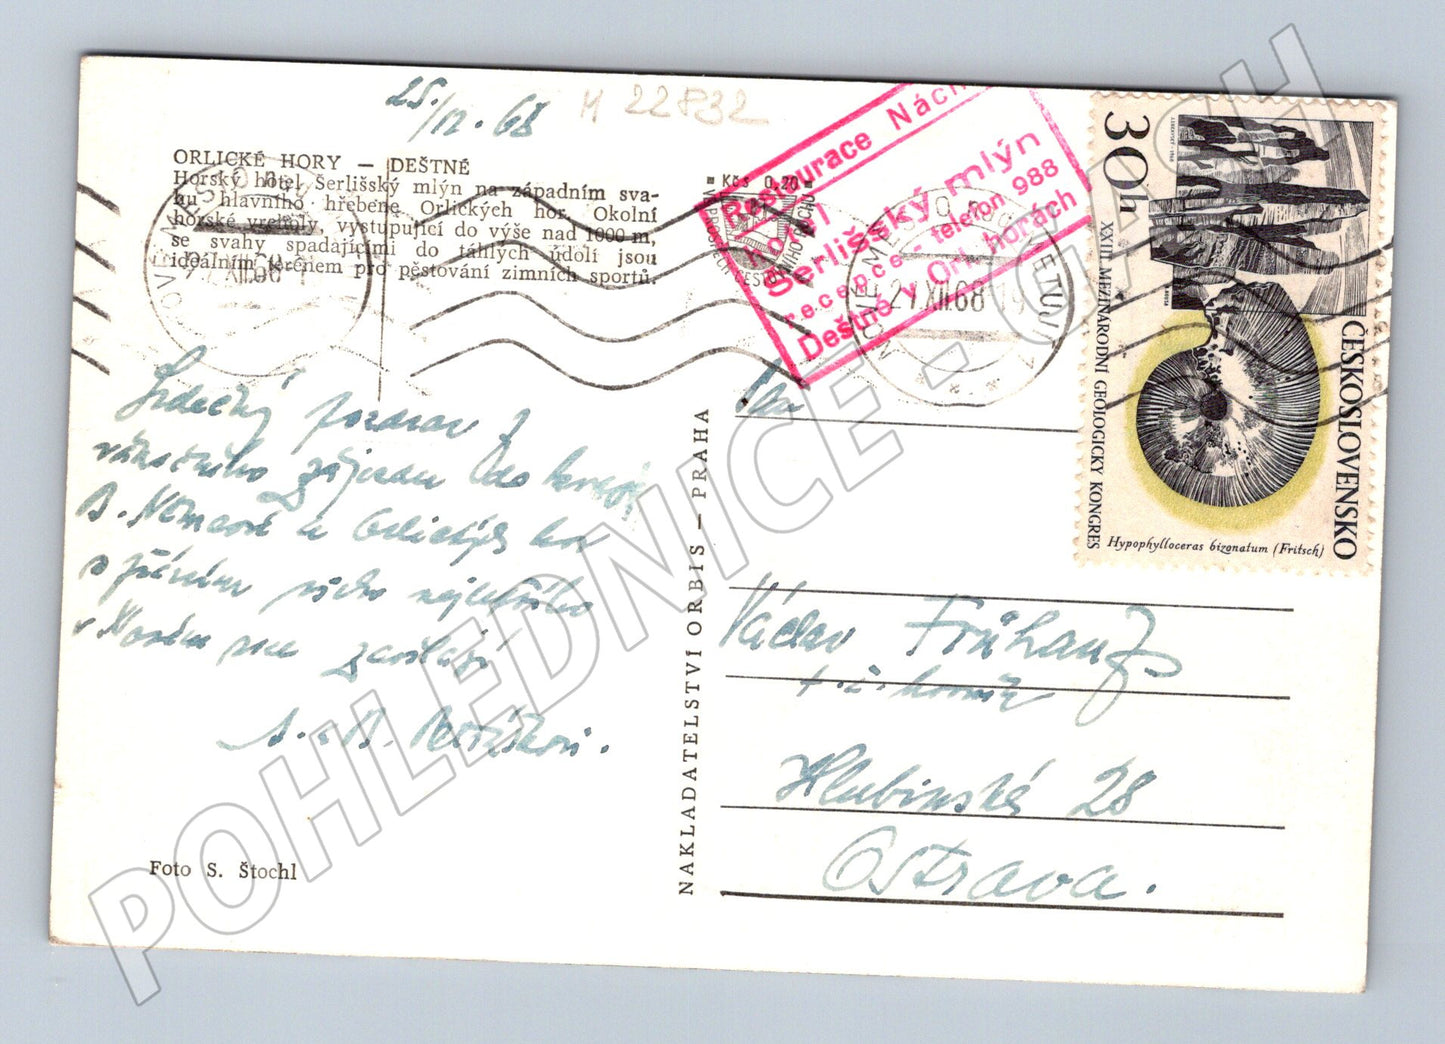 25./12. 68
M 22832
ORLICKÉ HORY — DEŠTNÉ
Horský hotel Šerlišský mlýn na západním sva-
hu hlavního hřebene Orlických hor. Okolní
horské vrcholy, vystupující do výše nad 1000 m,
se svahy spadajícími do táhlých údolí jsou
ideálním terénem pro pěstování zimních sportů.
Kčs 0.20
Restaurace Nách
hotel
Šerlišský mlýn
recepce - telefon 988
Deštné v Orl. horách
NOVÉ MĚSTO NAD METUJÍ
27.XII.68
30h
XXIII. MEZINÁRODNÍ GEOLOGICKÝ KONGRES
ČESKOSLOVENSKO
Hypophylloceras bizonatum (Fritsch)
Srdečný pozdrav z
vánočního zájezdu do kraje
B. Němcové a Orlických hor
a přáním všeho nejlepšího
v Novém roce
NAKLADATELSTVÍ ORBIS — PRAHA
Václav Frühauf
Hlubinská 28
Ostrava.
Foto S. Štochl
POHLEDNICE - GACH